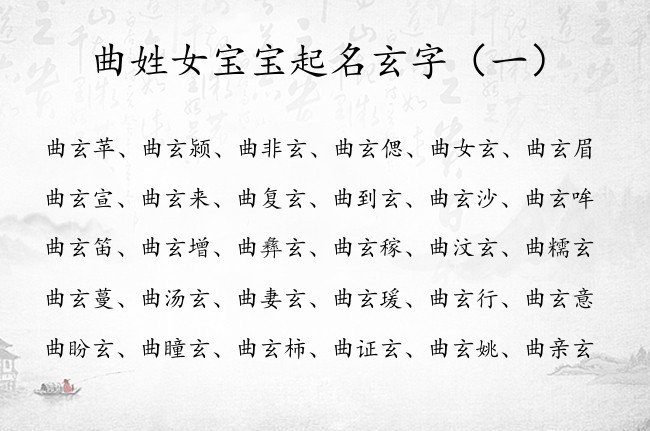 曲姓女宝宝起名玄字（一）
曲玄苹、曲玄颍、曲非玄、曲玄偲、曲女玄、曲玄眉
曲玄宣、曲玄来、曲复玄、曲到玄、曲玄沙、曲玄哞
曲玄笛、曲玄增、曲彝玄、曲玄稼、曲汶玄、曲糯玄
曲玄蔓、曲汤玄、曲妻玄、曲玄瑗、曲玄行、曲玄意
曲盼玄、曲瞳玄、曲玄柿、曲证玄、曲玄姚、曲亲玄